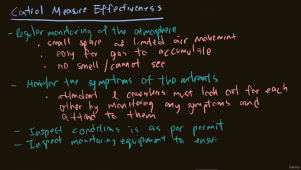 Control Measure Effectiveness
- Regular monitoring of the atmosphere
• small space & limited air movement
• easy for gas to accumulate
• no smell / cannot see
- Monitor the symptoms of the entrants
• attendant & coworkers must look out for each
other by monitoring any symptoms and
attend to them
- Inspect conditions is as per permit
- Inspect monitoring equipment to ensu